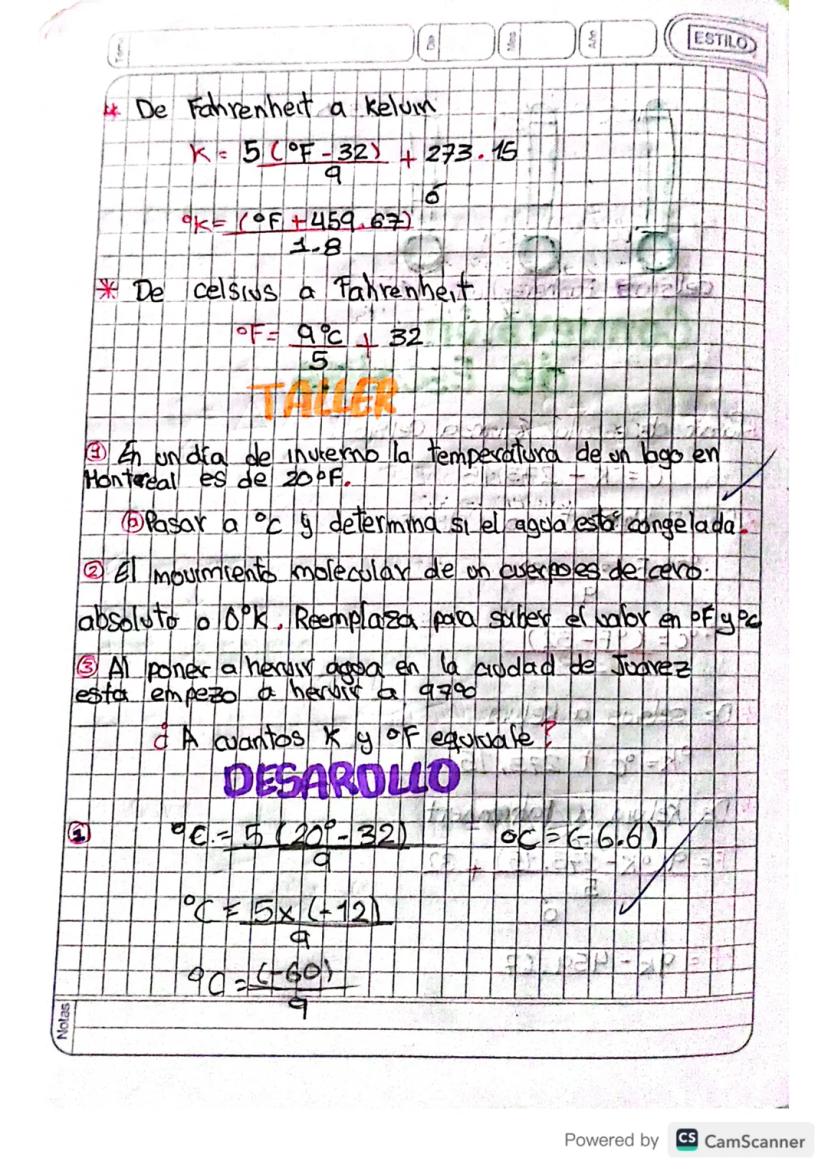 Tema
Día
Mes
Año
ESTILO
* De Fahrenheit a Kelvin
K = 5 (°F - 32) + 273.15
9
ó
°K = (°F + 459.67)
1.8
* De celsius a Fahrenheit
°F = 9°C + 32
5
TALLER
① En un día de invierno la temperatura de un lago en
Montreal es de 20°F.
Pasar a °C y determina si el agua está congelada.
② El movimiento molecular de un cuerpo es de cero
absoluto o 0°K. Reemplaza para saber el valor en °F y °C
③ Al poner a hervir agua en la ciudad de Juarez
esta empezo a hervir a 97°c
¿ A cuantos K y °F equivale?
DESAROLLO
① °C = 5 (20° - 32) °C = (-6.6)
9
°C = 5x (-12)
9
°C = (-60)
9
Notas
Powered by CS CamScanner